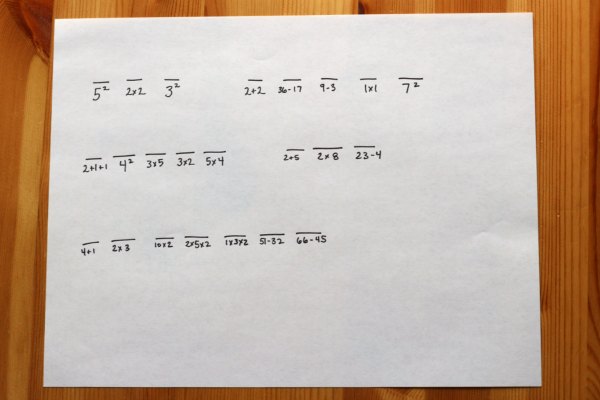 5² 2x2 3² 2+2 36-17 9-3 1x1 7²
2+1+1 4² 3x5 3x2 5x4 2+5 2x8 23-4
4+1 2x3 10x2 2x5x2 1x3x2 51-32 66-45